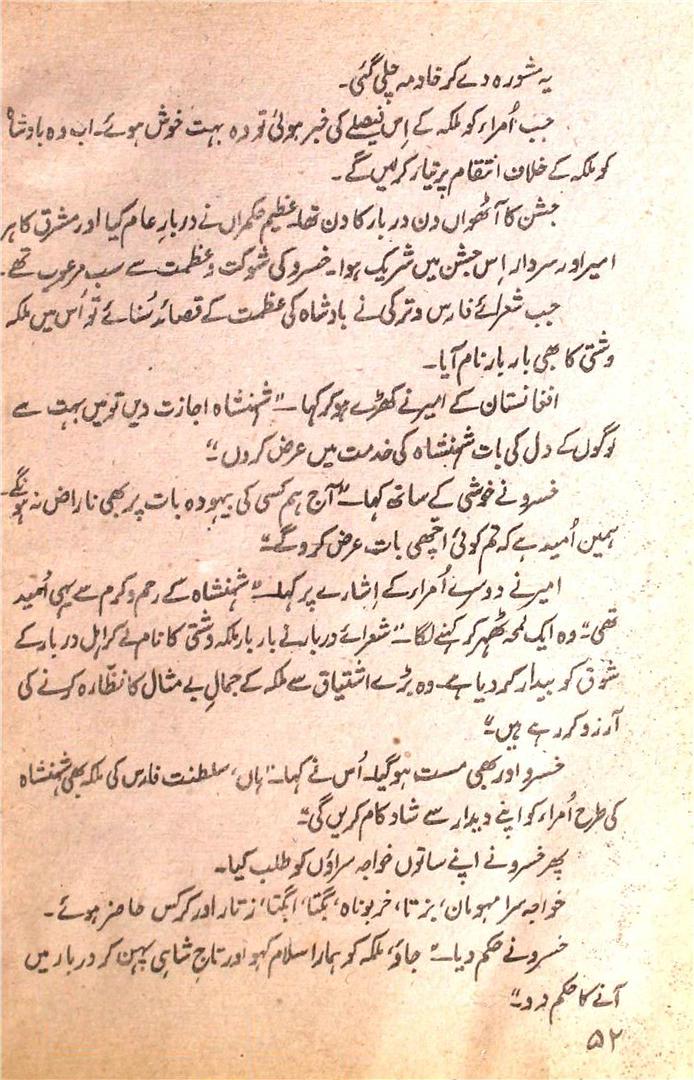 یہ مشورہ دے کر خادمہ چلی گئی۔
جب اُمراء کو ملکہ کے اِس فیصلے کی خبر ہوئی تو وہ بہت خوش ہوئے۔ اب وہ بادشاہ
کو ملکہ کے خلاف انتقام پر تیار کر لیں گے۔
جشن کا آٹھواں دن دربار کا دن تھا۔ عظیم حکمراں نے دربارِ عام کیا اور مشرق کا ہر
امیر اور سردار اِس جشن میں شریک ہوا۔ خسرو کی شوکت و عظمت سے سب مرعوب تھے۔
جب شعرائے فارس و ترکی نے بادشاہ کی عظمت کے قصائد سُنائے تو اُس میں ملکہ
وشتی کا بھی بار بار نام آیا۔
افغانستان کے امیر نے کھڑے ہو کر کہا۔ "شہنشاہ اجازت دیں تو میں بہت سے
لوگوں کے دل کی بات شہنشاہ کی خدمت میں عرض کروں"
خسرو نے خوشی کے ساتھ کہا۔ "آج ہم کسی کی بیہودہ بات پر بھی ناراض نہ ہونگے۔
ہمیں اُمید ہے کہ تم کوئی اچھی بات عرض کرو گے"
امیر نے دوسرے اُمراء کے اِشارے پر کہا۔ "شہنشاہ کے رحم و کرم سے یہی اُمید
تھی" وہ ایک لمحہ ٹھہر کر کہنے لگا۔ "شعرائے دربار نے بار بار ملکہ وشتی کا نام لے کر اہل دربار کے
شوق کو بیدار کر دیا ہے۔ وہ بڑے اشتیاق سے ملکہ کے جمالِ بے مثال کا نظّارہ کرنے کی
آرزو کر رہے ہیں"
خسرو اور بھی مست ہو گیا۔ اُس نے کہا۔ "ہاں، سلطنت فارس کی ملکہ بھی شہنشاہ
کی طرح اُمراء کو اپنے دیدار سے شاد کام کریں گی"
پھر خسرو نے اپنے ساتوں خواجہ سراؤں کو طلب کیا۔
خواجہ سرا مہومان، بزتا، خربوناہ، بگتا، ابگتا، زتار اور کرکس حاضر ہوئے۔
خسرو نے حکم دیا۔ "جاؤ، ملکہ کو ہمارا سلام کہو اور تاجِ شاہی پہن کر دربار میں
آنے کا حکم دو"
۵۲